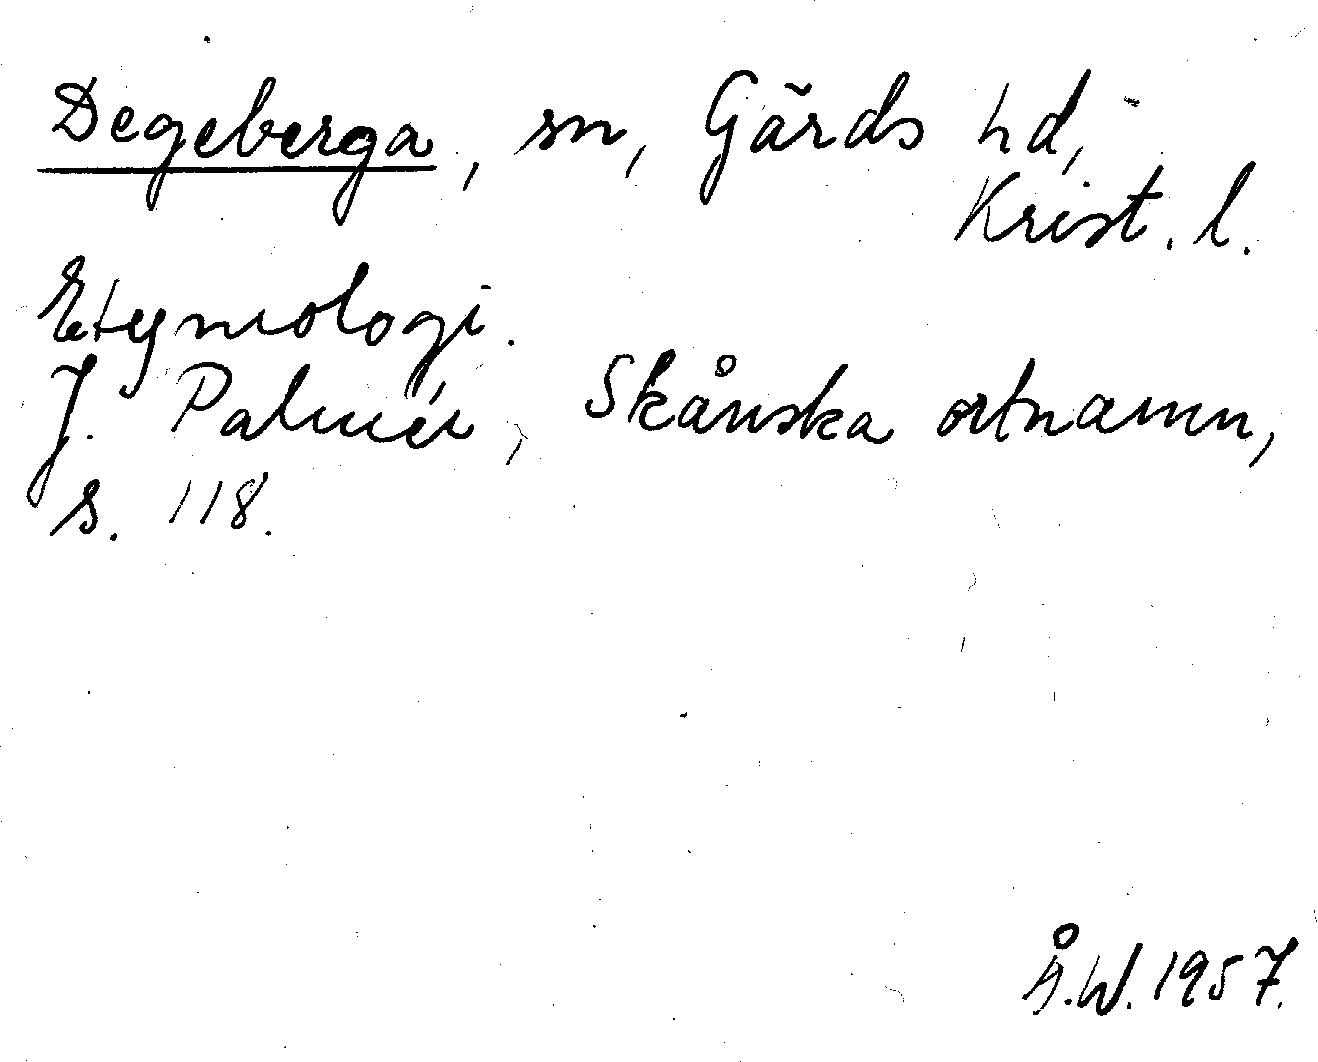 Degeberga, sn, Gärds hd,
Krist. l.
Etymologi.
J. Palmér, Skånska ortnamn,
s. 118.
Å.W. 1957.